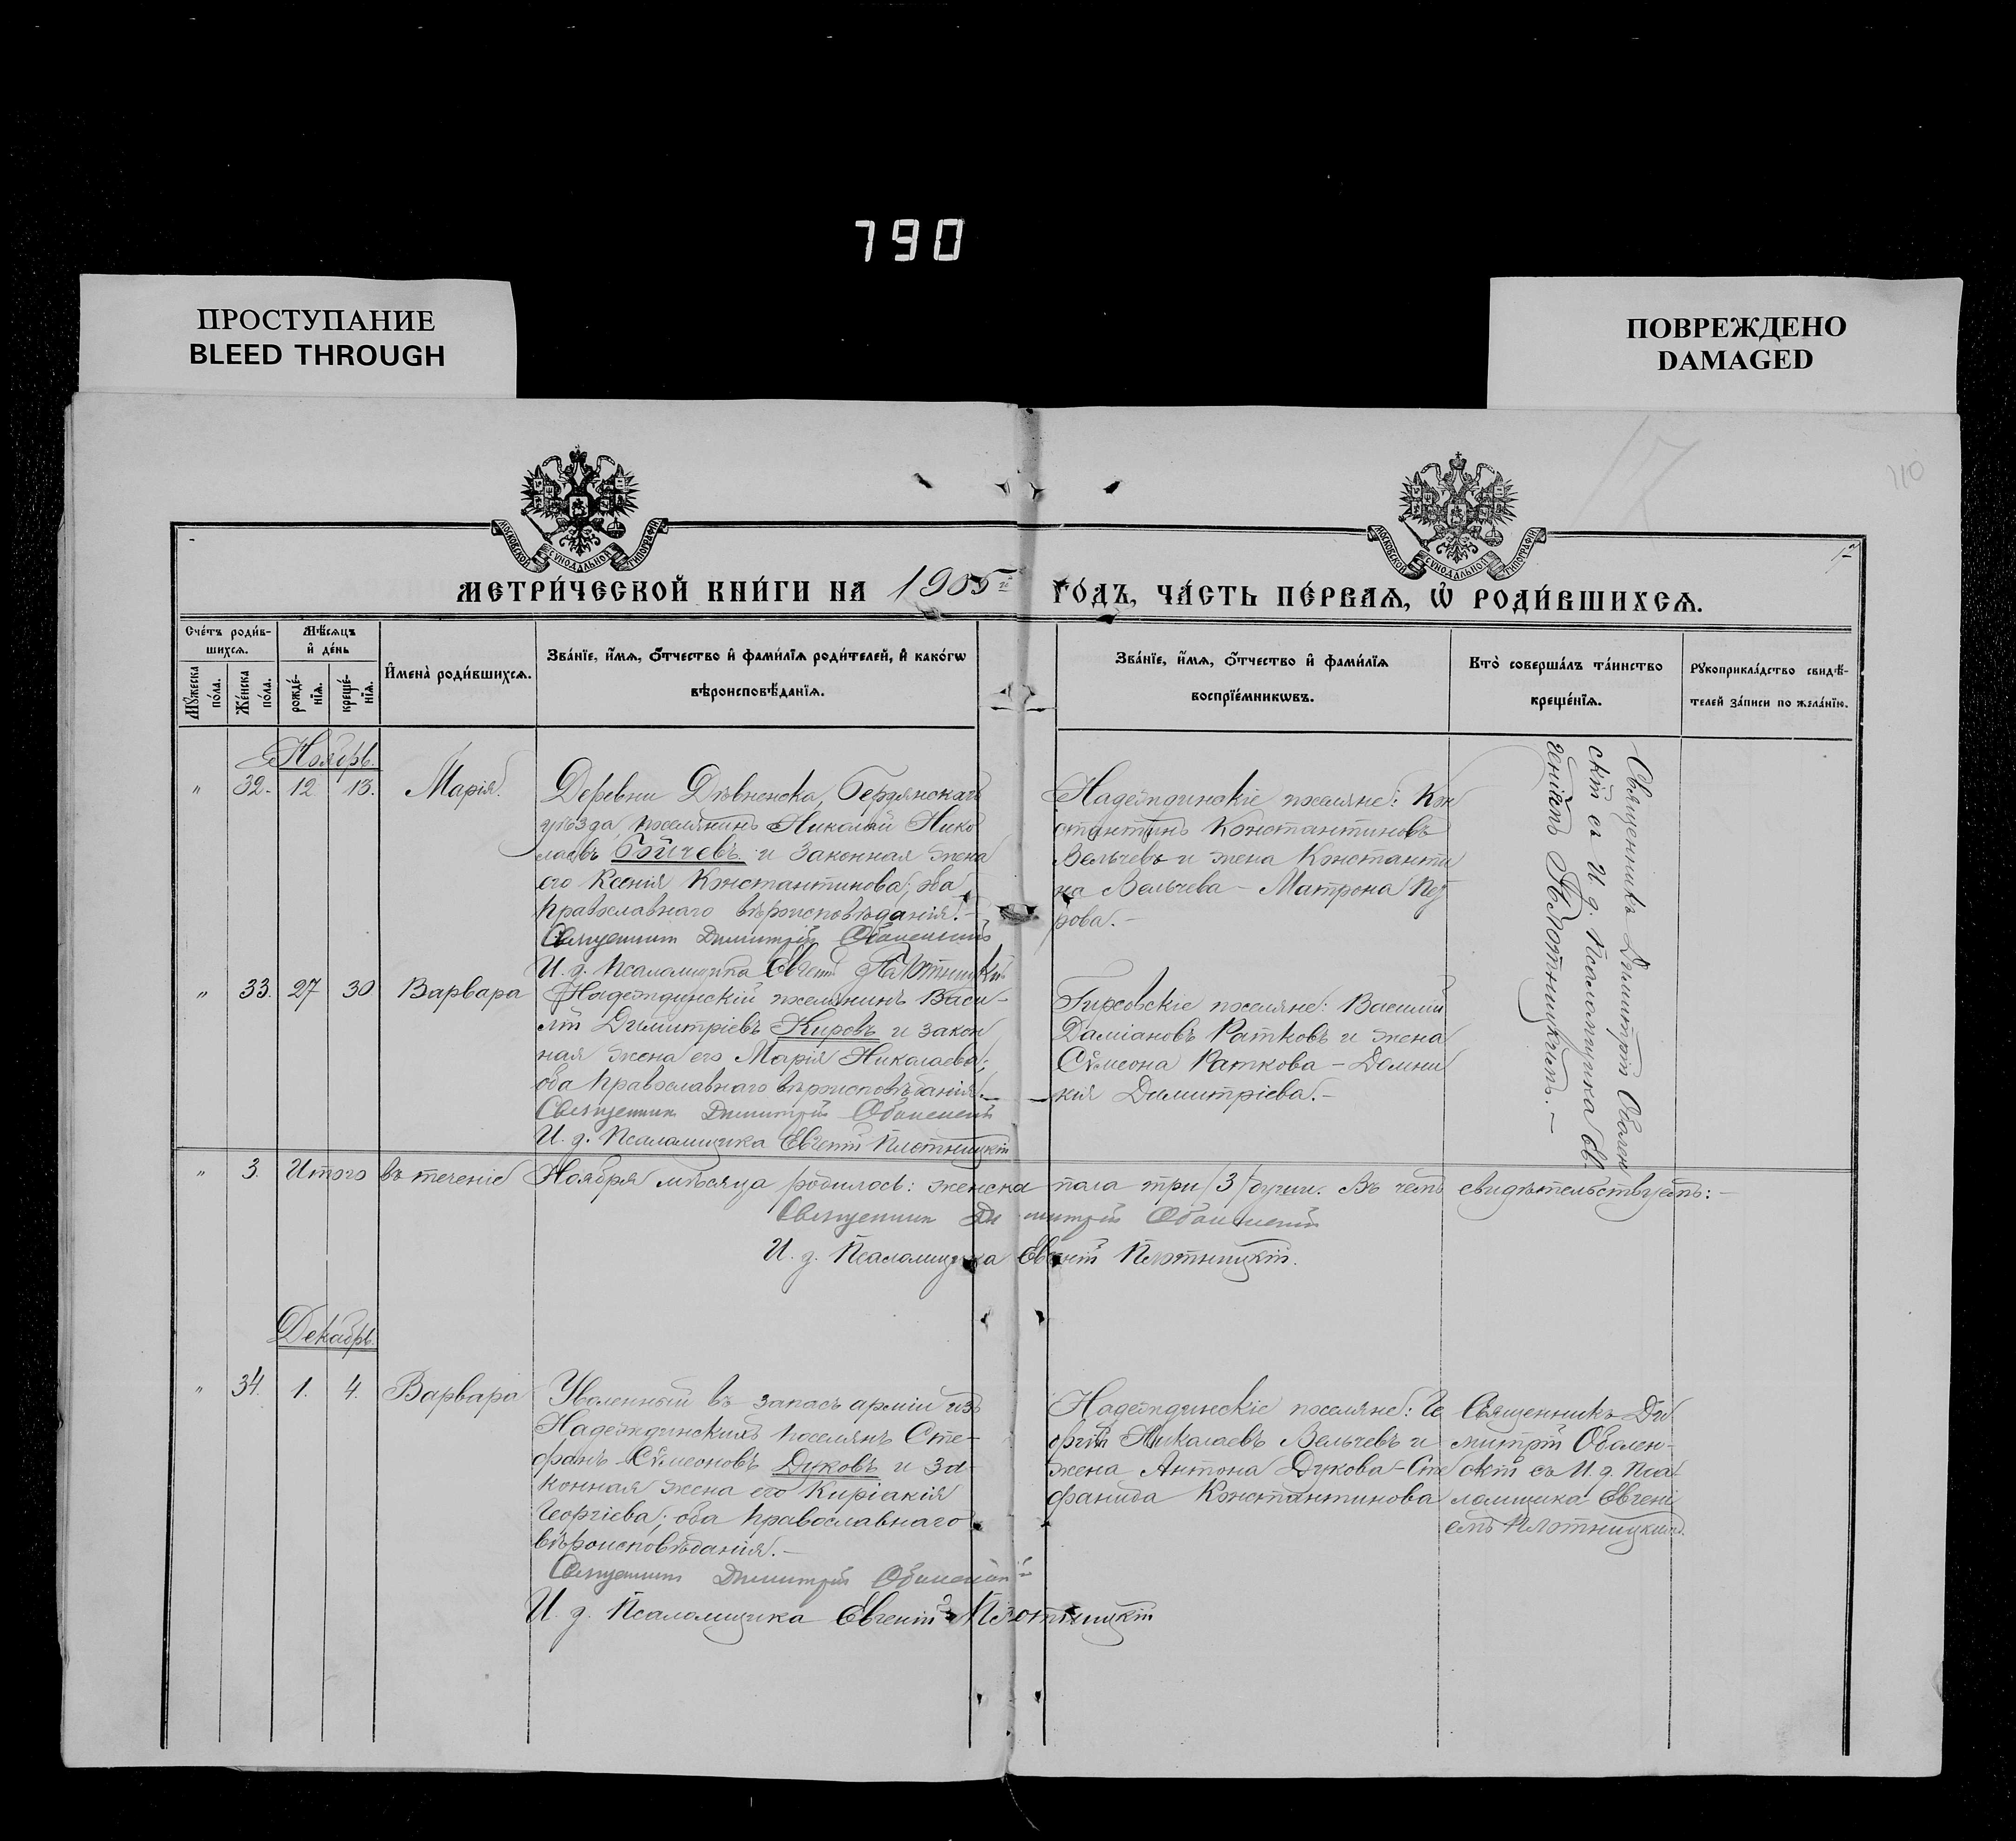 790
ПРОСТУПАНИЕ
BLEED THROUGH
ПОВРЕЖДЕНО
DAMAGED
110
МОСКОВСКОЙ СѴНОДАЛЬНОЙ ТИПОГРАФІИ
МОСКОВСКОЙ СѴНОДАЛЬНОЙ ТИПОГРАФІИ
МЕТРИ́ЧЕСКОЙ КНИ́ГИ НА 1905й ГО́ДЪ, ЧА́СТЬ ПЕ́РВАѦ, Ѡ҆ РОДИ́ВШИХСѦ.
Сче́тъ роди́в-
шихсѧ.
Мꙋ́жеска по́ла.
Же́нска по́ла.
Мѣ́сѧцъ и҆ де́нь
рожде́-нїѧ.
креще́-нїѧ.
И҆мена̀ роди́вшихсѧ.
Зва́нїе, и҆́мѧ, ѻ҆́тчество и҆ фами́лїѧ роди́телей, и҆ како́гѡ
вѣроисповѣ́данїѧ.
Зва́нїе, и҆́мѧ, ѻ҆́тчество и҆ фами́лїѧ
воспрїе́мникѡвъ.
Кто̀ соверша́лъ та́инство
креще́нїѧ.
Рꙋкоприкла́дство свидѣ́-
телей за́писи по жела́нїю.
Ноябрь.
" 32. 12 13. Марія.
Деревни Діевненска, Бердянскаго
уѣзда, поселянинъ Николай Нико
лаевъ Бойчевъ и законная жена
его Ксенія Константинова; оба
православнаго вѣроисповѣданія.-
Священникъ Димитрій Оболенскій
И. д. Псаломщика Евгеній Плотницкій
Надеждинскіе поселяне: Кон
стантинъ Константиновъ
Вельчевъ и жена Константи
на Вельчева - Матрона Пет
рова.-
Священникъ Димитрій Оболен
скій съ И. д. Псаломщика Ев
геніемъ Плотницкимъ.-
" 33. 27 30 Варвара
Надеждинскій поселянинъ Васи-
лій Димитріевъ Кировъ и закон
ная жена его Марія Николаева;
оба православнаго вѣроисповѣданія.-
Священникъ Димитрій Оболенскій
И. д. Псаломщика Евгеній Плотницкій
Гирсовскіе поселяне: Василій
Даміановъ Ратковъ и жена
Сѵмеона Раткова - Домни
кія Димитріева.-
" 3. Итого въ теченіе Ноября мѣсяца родилось: женска пола три /3/ души. Въ чемъ свидѣтельствуемъ:-
Священникъ Димитрій Оболенскій
И. д. Псаломщика Евгеній Плотницкій.
Декабрь
" 34. 1. 4. Варвара
Уволенный въ запасъ арміи изъ
Надеждинскихъ поселянъ Сте-
фанъ Сѵмеоновъ Дуковъ и за-
конная жена его Киріакія
Георгіева; оба православнаго
вѣроисповѣданія.-
Священникъ Димитрій Оболенскій
И. д. Псаломщика Евгеній Плотницкій
Надеждинскіе поселяне: Ге
оргій Николаевъ Вельчевъ и
жена Антона Дукова - Сте
фанида Константинова
Священникъ Ди
митрій Оболен-
скій съ И. д. Пса
ломщика Евгені
емъ Плотницкимъ.